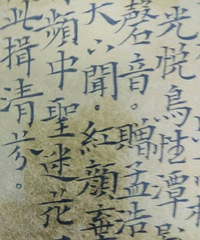 光悅鳥性潭影
磬音。贈孟浩
天下聞。紅顏棄
頻中聖迷花
此揖清芬。